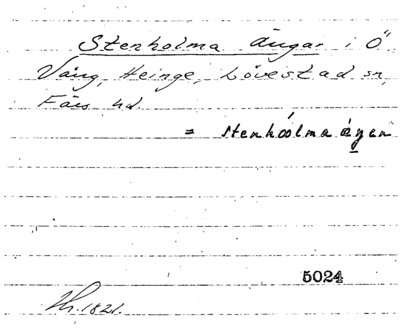 Stenholma ängar i Ö
Vång, Heinge, Lövestad sn,
Färs hd
= stenhoólma áɡen
5024
Lh. 1821.